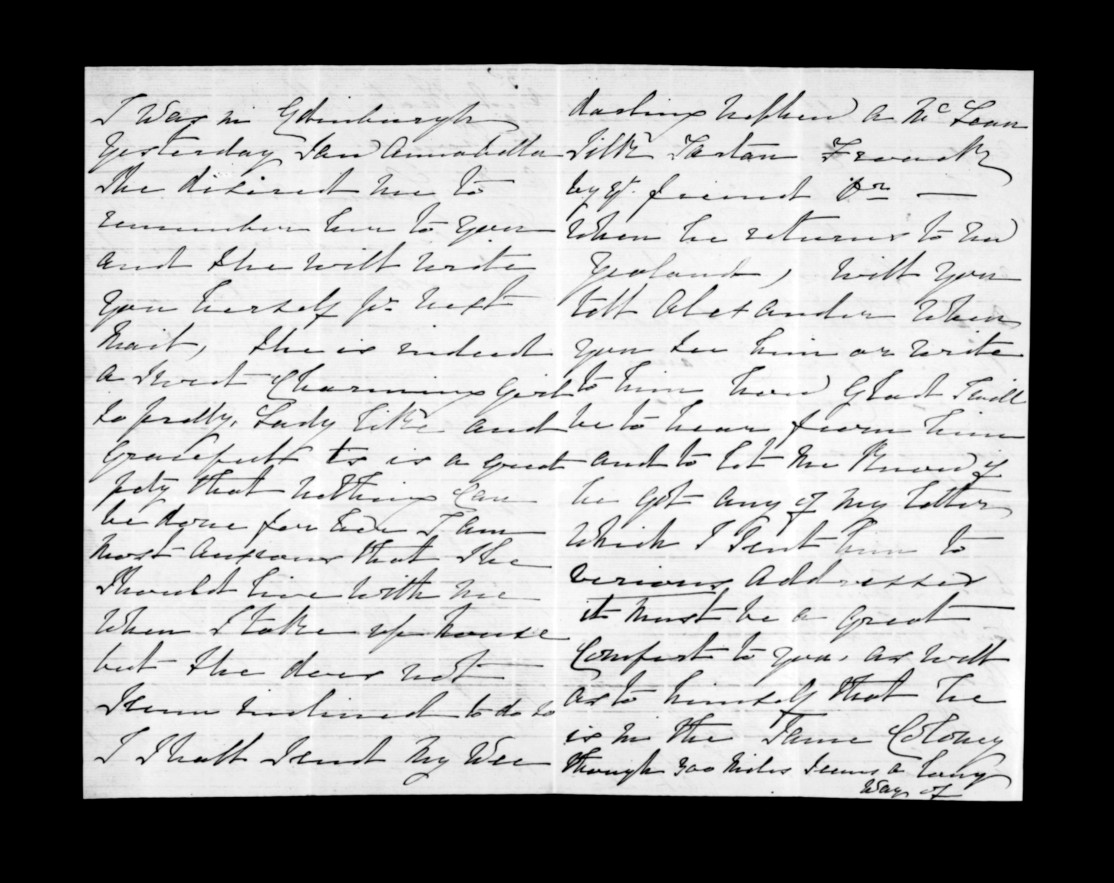 I Was in Edinburgh
Yesterday Saw Annabella
She desired me to
remember her to you
and she will write
you herself pr next
Mail, She is indeed
a Sweet Charming Girl
so pretty, Lady like and
Gracefull ts is a great
pity that nothing Can
be done for her I am
most anxious that She
Should live with me
When I take up house
but She does not
Seem inclined to do so
I Shall Send My Wee
darling Nephew a McLean
Silk Tartan Frock
by yr. friend Dr —
When he returns to New
Zealand, Will you
tell Alexander When
you See him or write
to him how Glad I will
be to hear from him
and to let me Know if
he got any of my letters
Which I Sent him to
verious Addresses
it must be a great
Comfort to you, as well
as to himself that he
is in the Same Coloney
though 300 Miles Seems a long
Way of